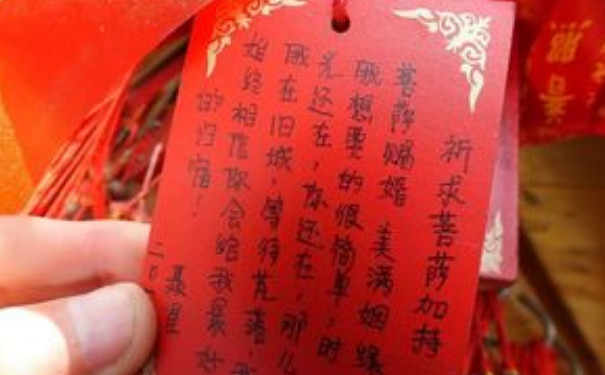 祈求菩萨加持
菩萨赐婚 美满姻缘
我想要的很简单,时
光还在,你还在,那么
我在旧城,等待荒落,我
始终相信你会给我最好
的归宿!
聂星
二〇
普照